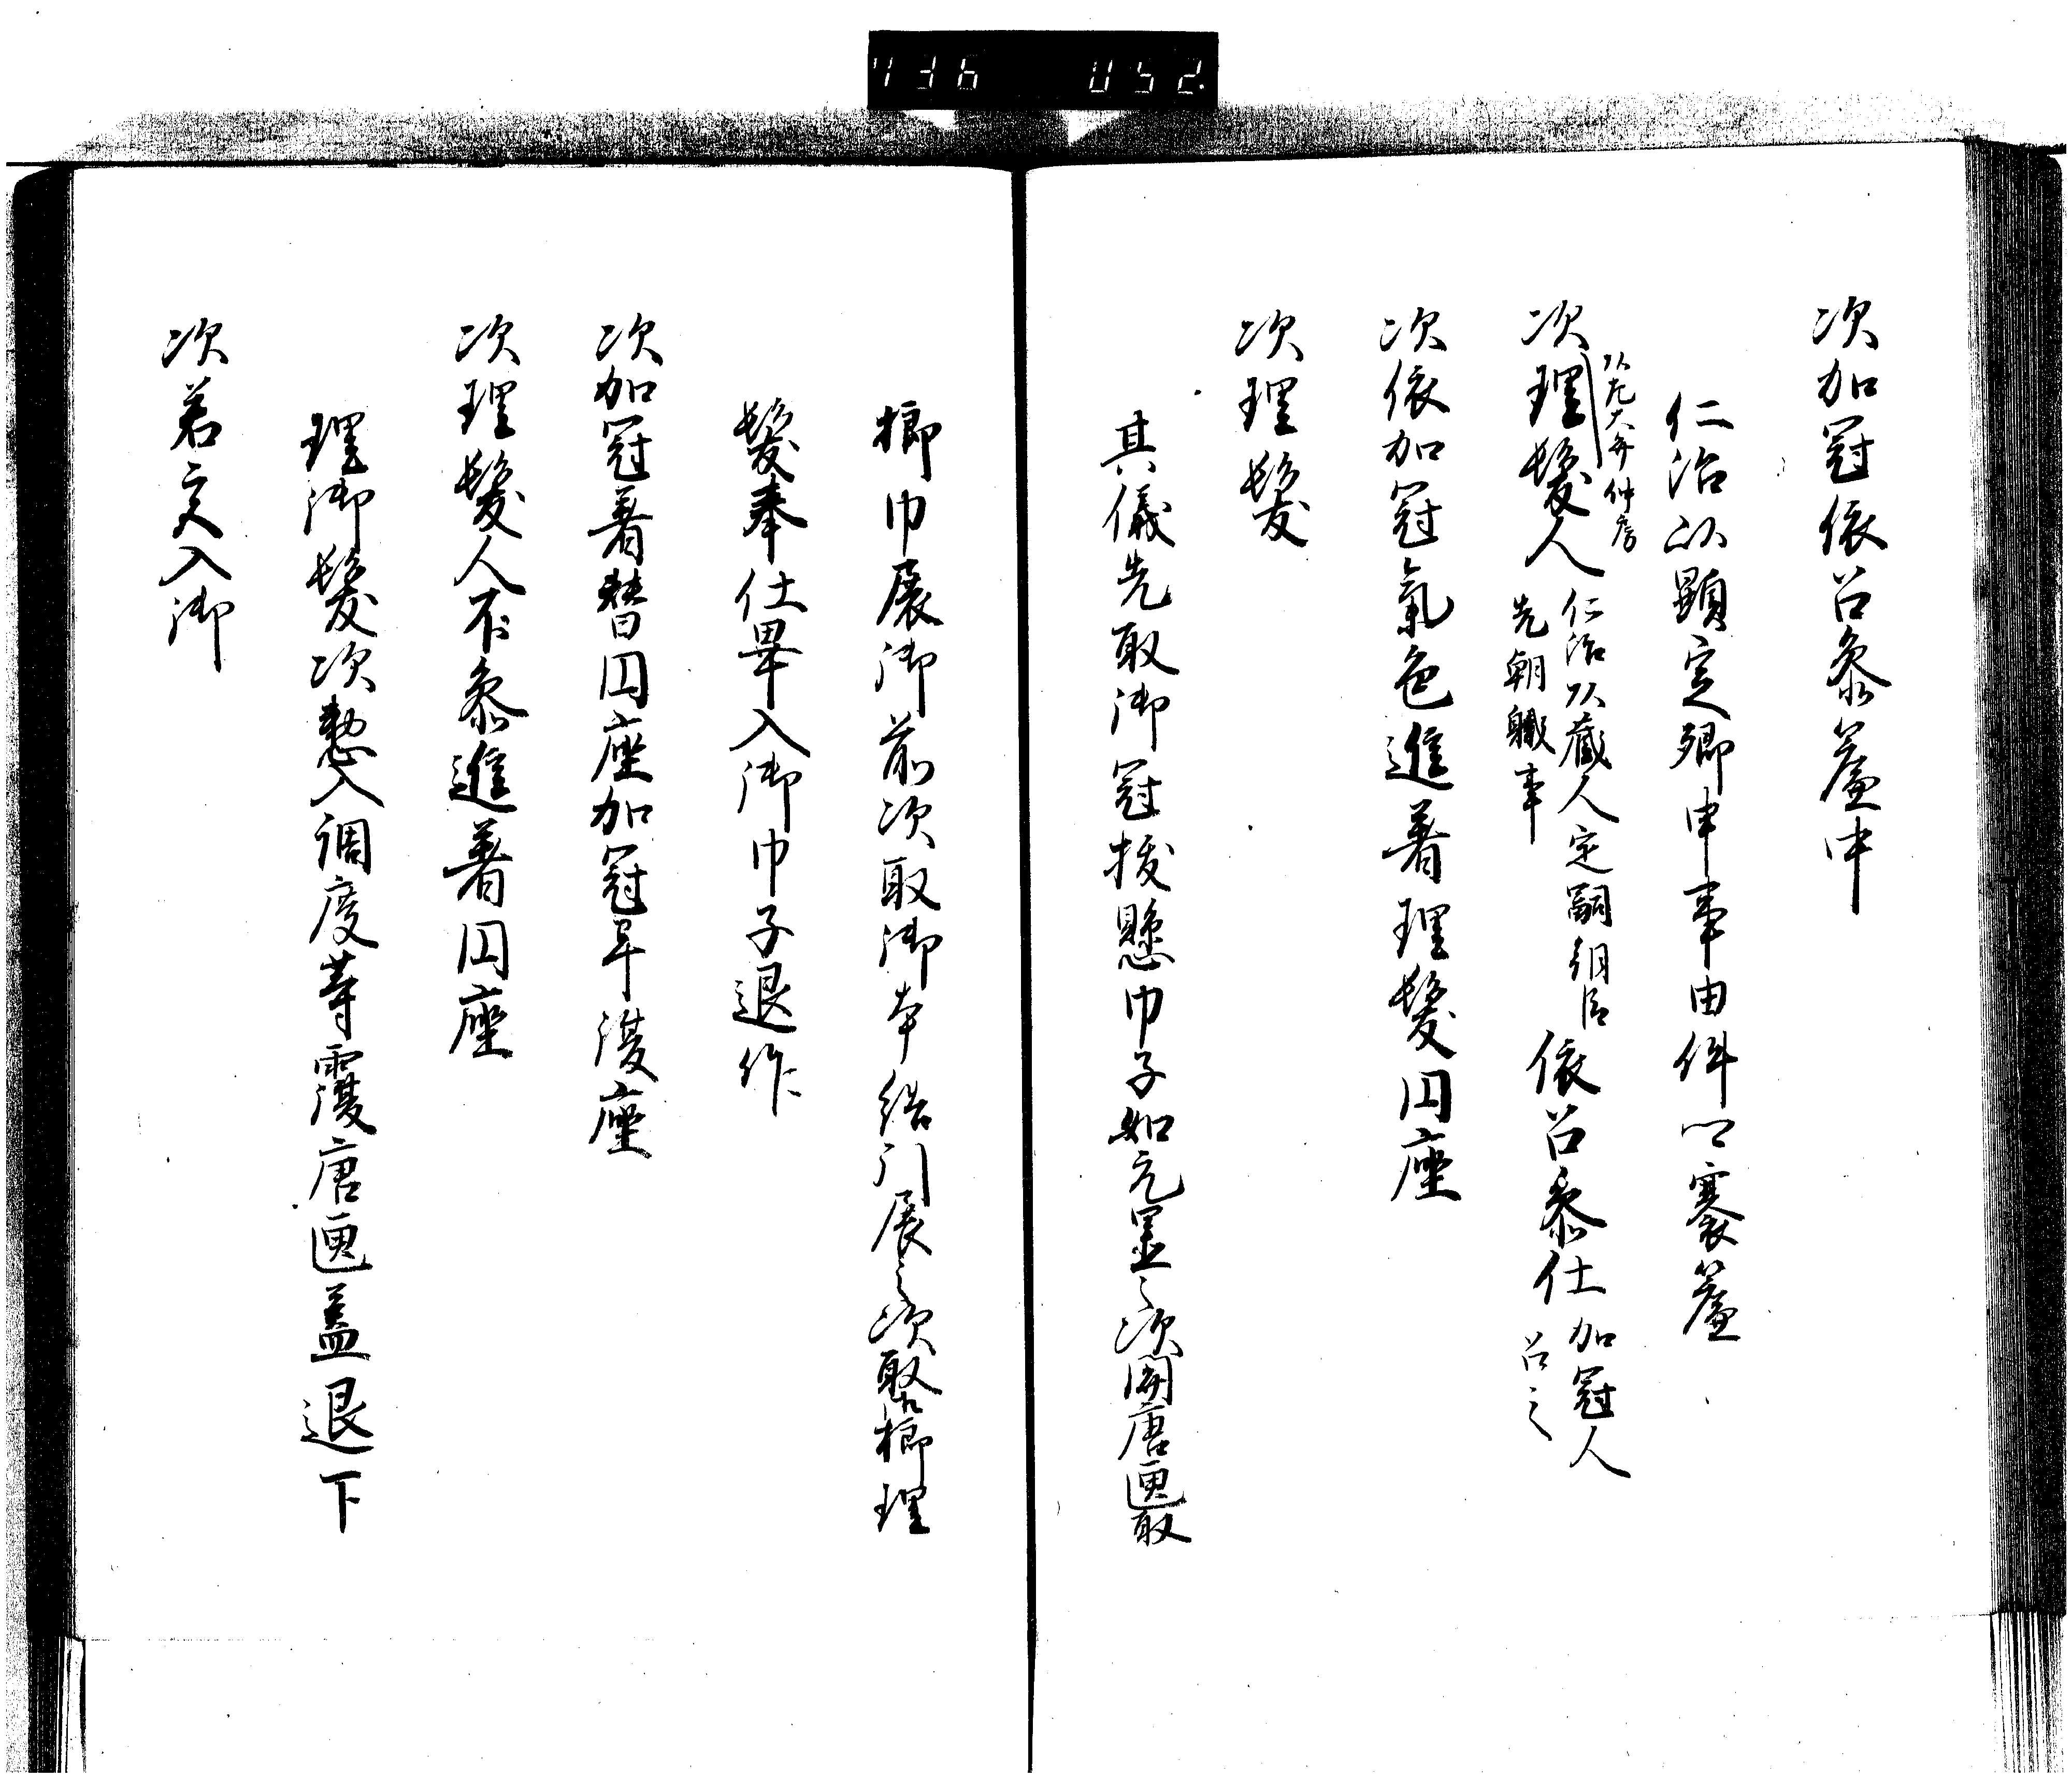 736 052
次加冠依召参簾中
仁治以顕定卿申事由件卿褰簾
次理髪人 仁治以蔵人定嗣朝臣 依召参仕 加冠人
以左大弁仲房
先朝職事
召之
次依加冠氣色進著理髪円座
次理髪
其儀先取御冠抜懸巾子如元置之次開唐匣取
櫛巾展御前次取御本結引展之次取櫛理
髪奉仕畢入御巾子退作
次加冠著替円座加冠畢復座
次理髪人不参進著円座
理御髪次 入調度等覆唐匣蓋退下
次若宮入御